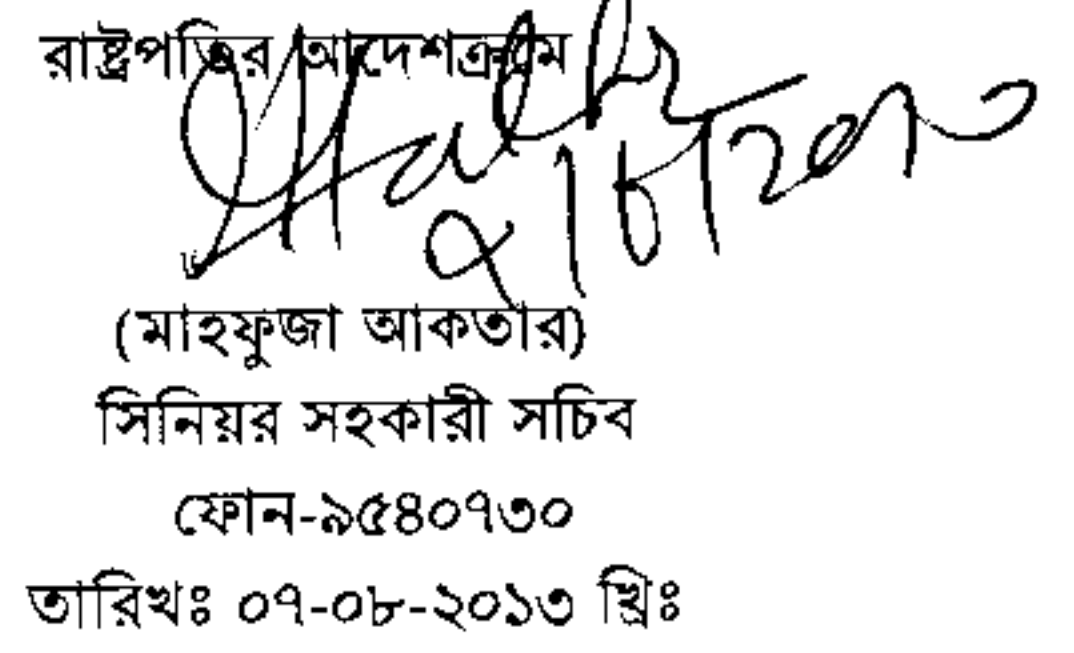 রাষ্ট্রপতির আদেশক্রমে
৭।৮।২০১৩
(মাহফুজা আকতার)
সিনিয়র সহকারী সচিব
ফোন-৯৫৪০৭৩০
তারিখঃ ০৭-০৮-২০১৩ খ্রিঃ